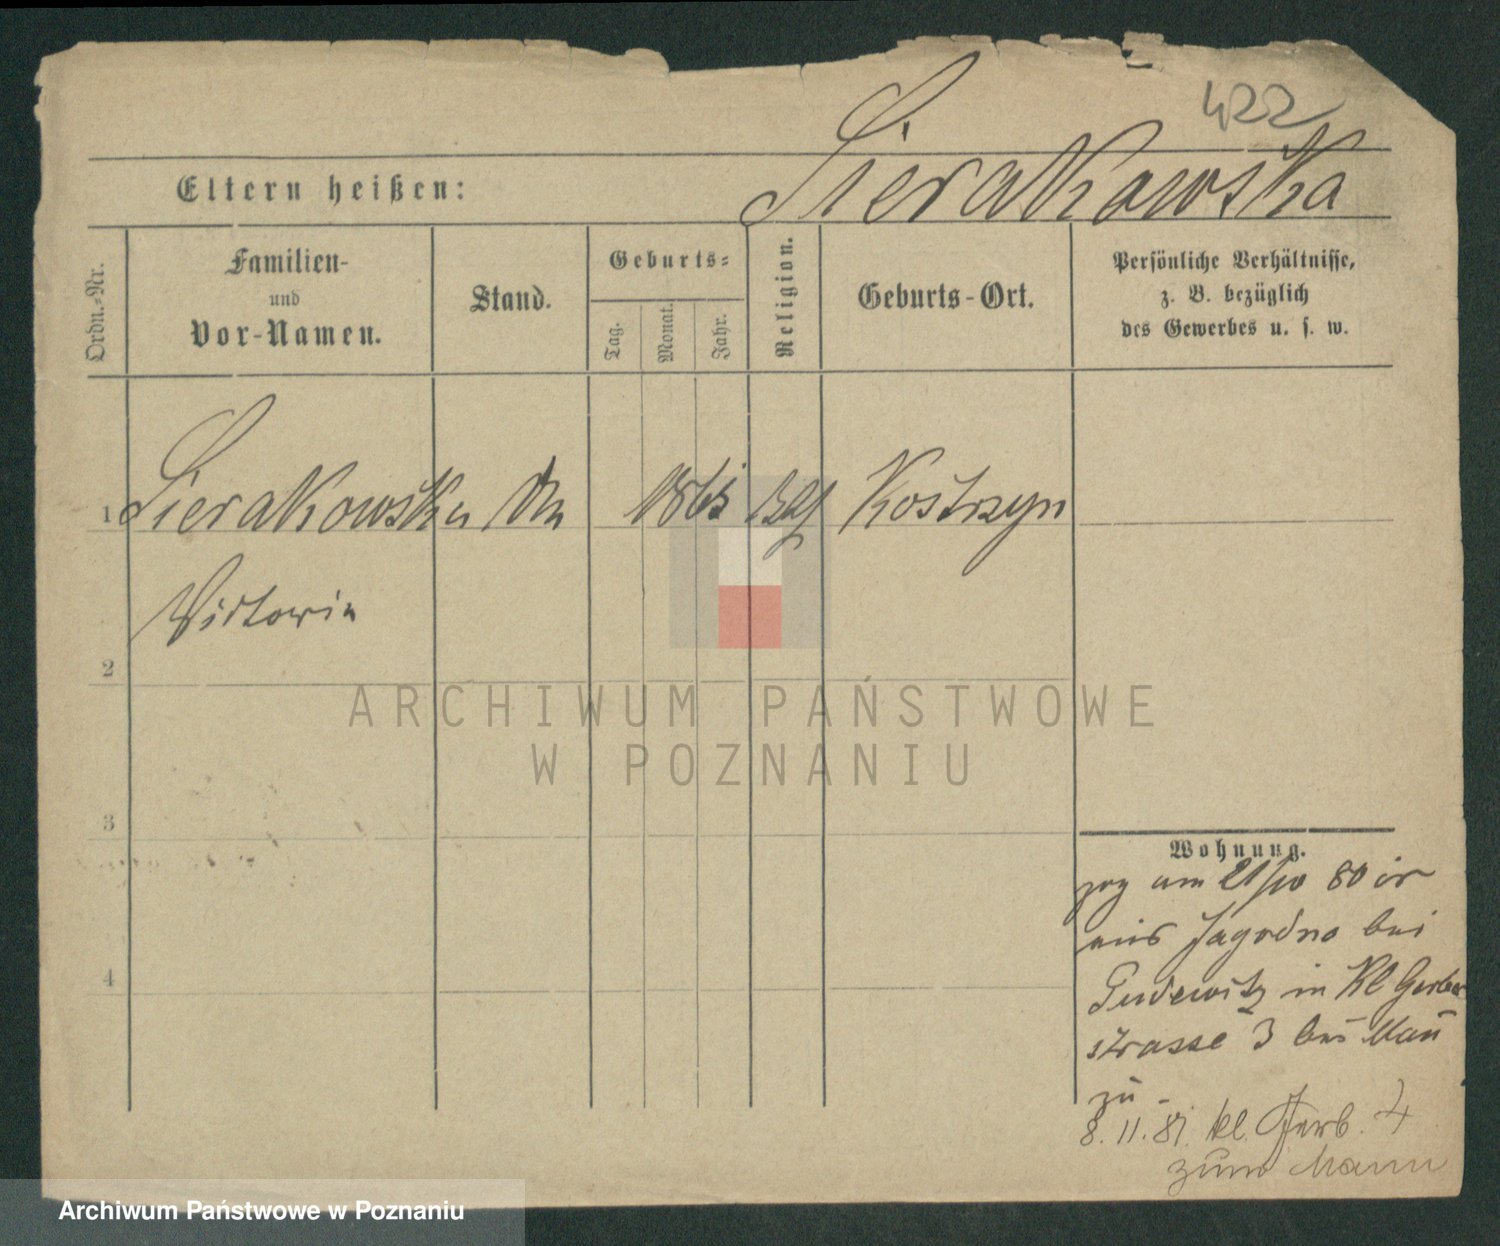 422
Sierakowska
Eltern heißen:
Ordn.-Nr.
Familien-
und
Vor-Namen.
Stand.
Geburts-
Tag.
Monat.
Jahr.
Religion.
Geburts-Ort.
Persönliche Verhältnisse,
z. B. bezüglich
des Gewerbes u. s. w.
1 Sierakowska 1865 Kostrzyn
Victoria
2
3
4
Wohnung.
zog am 21/10 80 ir
aus Jagodno bei
Pudewitz in Kl Gerber
strasse 3 bei
zu
8. 11. 81. kl. Gerb. 4
zum Mann
ARCHIWUM PAŃSTWOWE
W POZNANIU
Archiwum Państwowe w Poznaniu